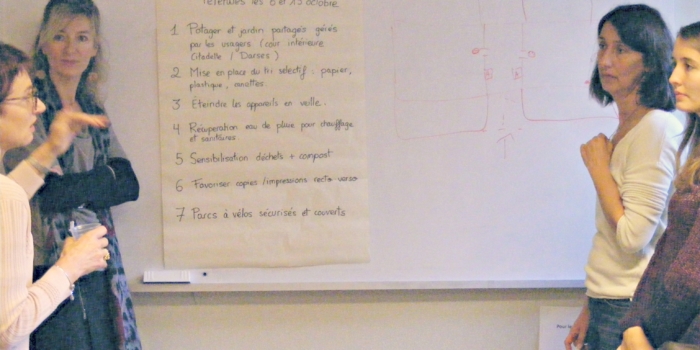 retenues les 6 et 13 octobre
1 Potager et jardin partagés gérés
par les usagers (cour intérieure
Citadelle / Dorses)
2 Mise en place du tri sélectif : papier,
plastique, canettes
3 Eteindre les appareils en veille.
4 Récupération eau de pluie pour chauffage
et sanitaires
5 Sensibilisation déchets + compost
6 Favoriser copies/impressions recto verso
7 Parcs à vélos sécurisés et couverts